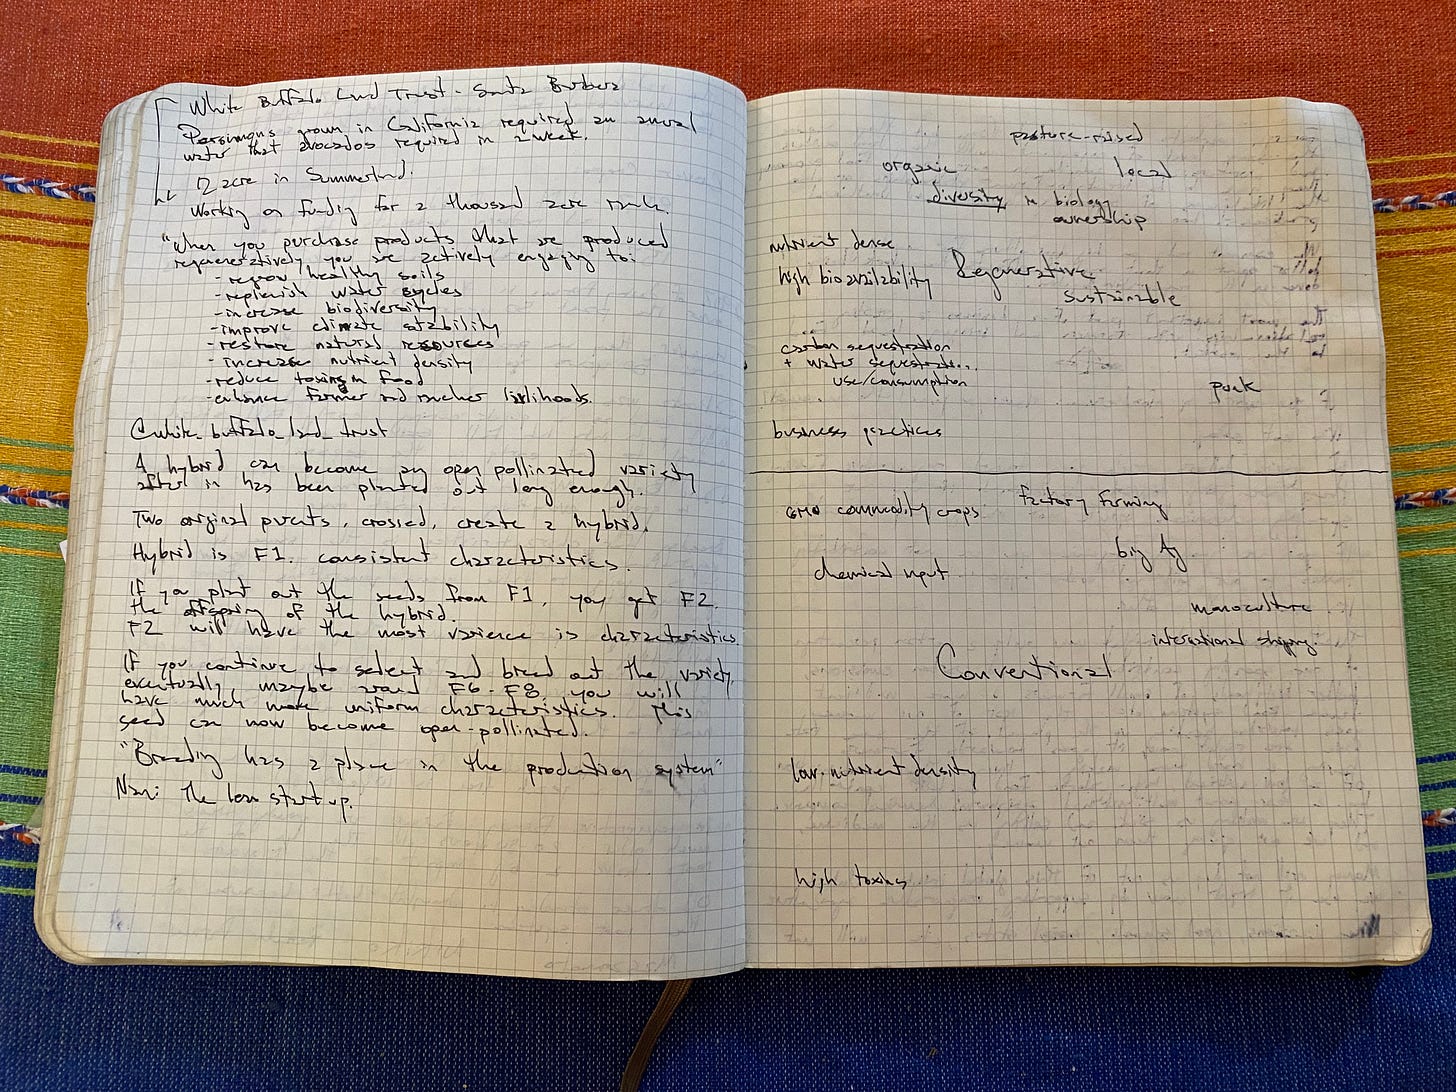 White Buffalo Land Trust - Santa Barbara
Persimmons grown in California required an annual
water that avocados required in a week.
12 acre in Summerland.
Working on funding for a thousand acre ranch.
"When you purchase products that are produced
regeneratively you are actively engaging to:
- regrow healthy soils
- replenish water cycles
- increase biodiversity
- improve climate stability
- restore natural resources
- increase nutrient density
- reduce toxins in food
- enhance farmer and rancher livelihoods.
@white_buffalo_land_trust
A hybrid can become an open pollinated variety
after in has been planted out long enough.
Two original parents, crossed, create a hybrid.
Hybrid is F1. consistent characteristics.
If you plant out the seeds from F1, you get F2.
the offspring of the hybrid.
F2 will have the most varience is characteristics.
If you continue to select and breed out the variety,
eventually maybe around F6-F8, you will
have much more uniform characteristics. This
seed can now become open-pollinated.
"Breeding has a place in the production system"
the start up.
pasture-raised
organic local
diversity in biology
ownership
nutrient dense
high bioavailability Regenerative
sustainable
carbon sequestration
+ water sequestration...
use/consumption
business practices
GMO commodity crops factory farming
big Ag
chemical input
monoculture
international shipping
Conventional
low-nutrient density
high toxins